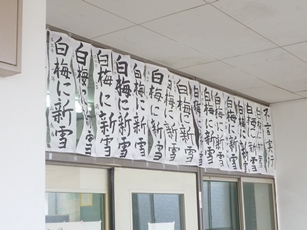 不言実行
白梅に新雪
白梅に新雪
白梅に新雪
白梅に新雪
白梅に新雪
白梅に新雪
白梅に新雪
白梅に新雪
白梅に新雪
白梅に新雪
白梅に新雪
白梅に新雪